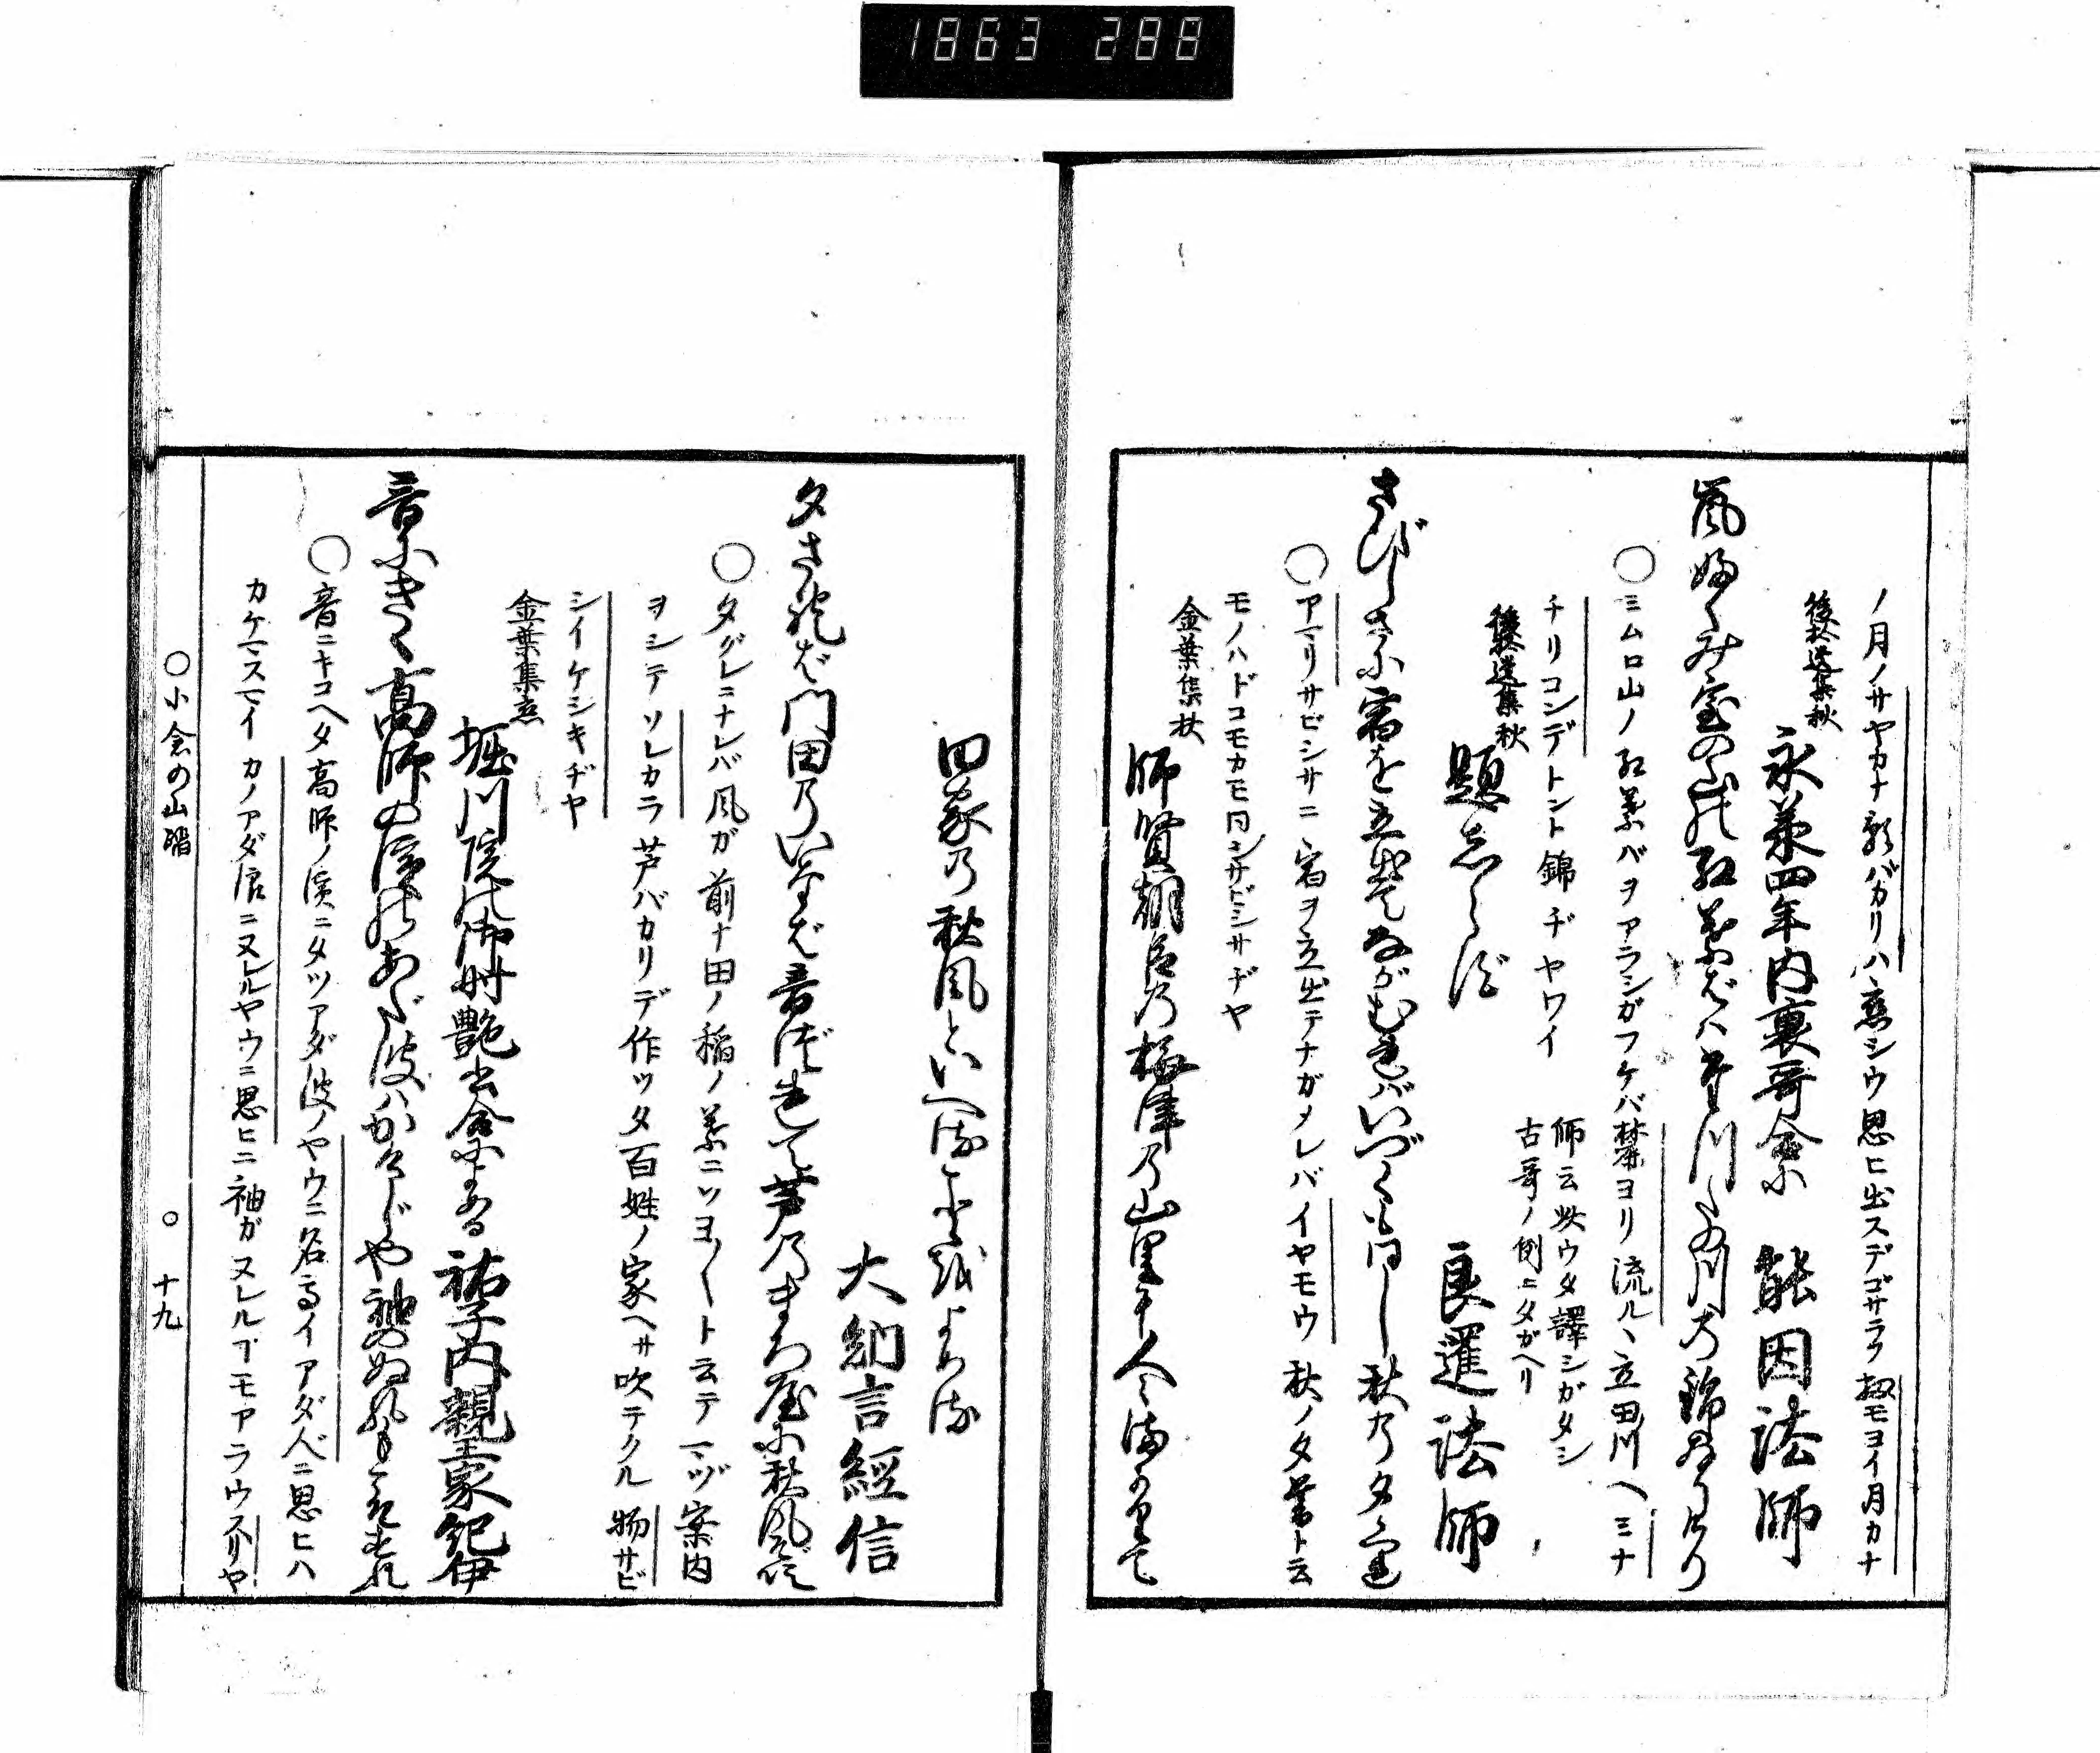 1863 288
ノ月ノサヤカナ影バカリハ、恋シウ思ヒ出スデゴザラウ扨モヨイ月カナ
後拾遺集秋
永承四年内裏哥合に 能因法師
嵐ふくみ室の山のもみぢ葉はたつ田の川の錦なりけり
〇ミムロ山ノ紅葉バヲアラシガフケバ禁ヨリ流ルヽ立田川ヘミナ
チリコンデトント錦ヂヤワイ
師云此ウタ譯シガタシ
古哥ノ例ニタガヘリ
後拾遺集秋
題志らず 良暹法師
さびしさに宿を立出てながむればいづくも同し秋の夕ぐれ
〇アマリサビシサニ宿ヲ立出テナガメレバイヤモウ秋ノタ暮ト云
モノハドコモカモ同シサビシサヂヤ
金葉集秋
師賢朝臣の梅津の山里に人々まかりて
田家の秋風といへることをよめる
大納言經信
夕されば門田のいなば音づれて芦のまろ屋に秋風ぞ
〇夕グレニナレバ風ガ前ナ田ノ稲ノ葉ニソヨ〱ト云テマヅ案内
ヲシテソレカラ芦バカリデ作ツタ百姓ノ家ヘサ吹テクル物サビ
シイケシキヂヤ
金葉集恋
堀川院の御時艶書合によめる 祐子内親王家紀伊
音にきく高師の濱のあだ波はかけじや袖のぬれもこそすれ
〇音ニキコヘタ高師ノ濱ニタツアダ波ノヤウニ名高イアダ人ニ思ヒハ
カケマスマイカノアダ浪ニヌレルヤウニ思ヒニ袖ガヌレルヿモアラウスリヤ
〇小倉の山踏 〇十九